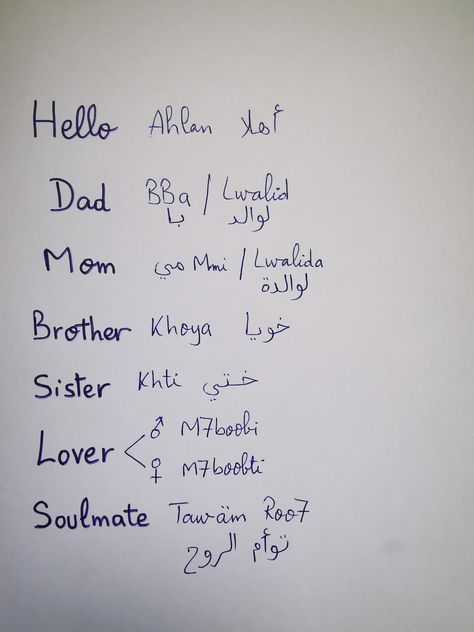 Hello Ahlan أهلا
Dad BBa / Lwalid
با لوالد
Mom مي Mmi / Lwalida
لوالدة
Brother Khoya خويا
Sister Khti ختي
Lover ♂ M7boobi
♀ M7boobti
Soulmate Tawäm Roo7
توأم الروح